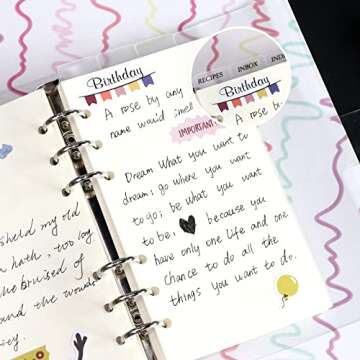 Birthday
A rose by any
name would smell
IMPORTANT
Dream What you want to
dream; go where you want
to go; be what you want
to be, because you
have only one life and one
chance to do all the
things you want to do.
RECIPES INBOX
Birthday
A rose by
held my old
hath, too long
bruised of
and the